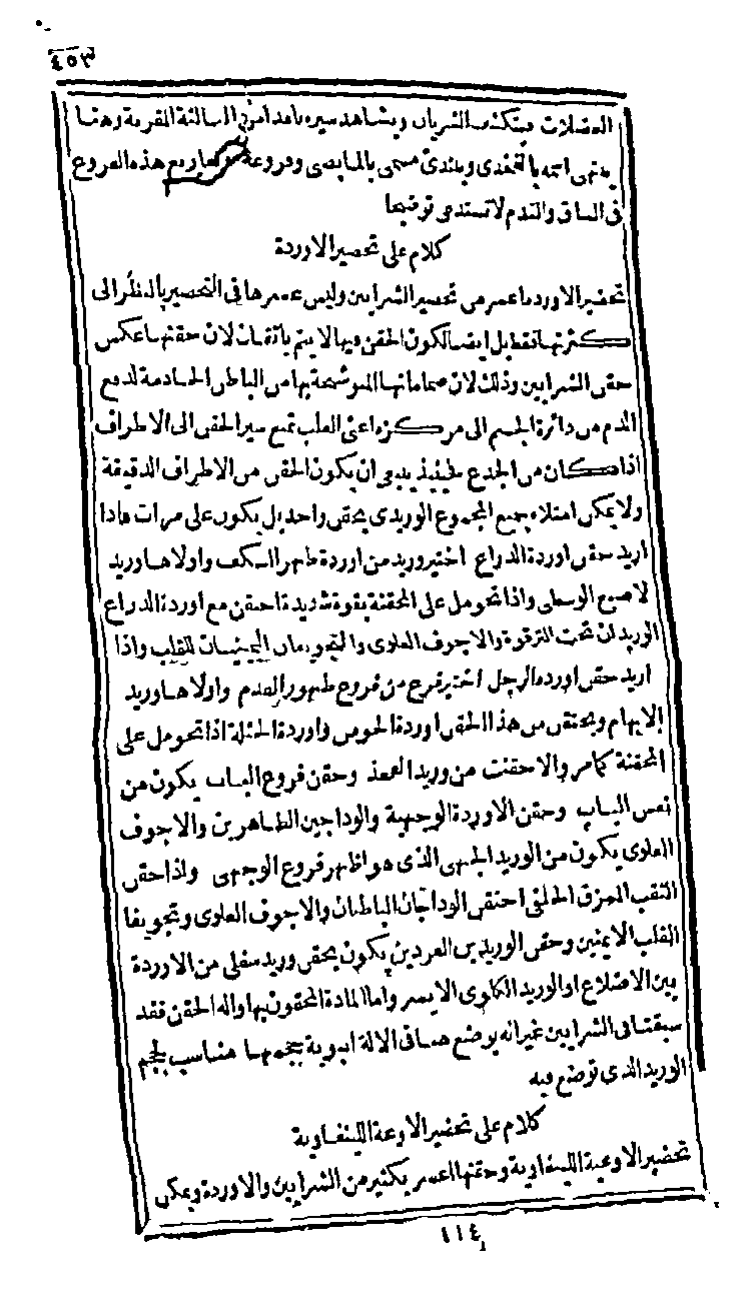 ٤٥٣
العضلات فينكشف الشريان ويشاهد سيره بامتداد في المسالفة القريبة وهنا
ينتهي اسمه بالفخذي ويبتدئ مسمى بالمابضي وفروعه وتفاريع هذه الفروع
في الساق والقدم لا تستدعي توضيحا
كلام على تحضير الاوردة
تحضير الاوردة اعسر من تحضير الشرايين وليس عسرها في التحضير بالنظر الى
كثرتها فقط بل ايضا لكون الحقن فيها لا يتم باتقان لان حقنها عكس
حقن الشرايين وذلك لان صماماتها الموشحة بها من الباطن الخادمة لدفع
الدم من دائرة الجسم الى مركزه اعني القلب تمنع سير الحقن الى الاطراف
اذا كان من الجذع فحينئذ ينبغي ان يكون الحقن من الاطراف الدقيقة
ولا يمكن امتلاء جميع المجموع الوريدي بحقن واحد بل يكون على مرات فاذا
اريد حقن اوردة الذراع اختير وريد من اوردة ظهر الكف واولاها وريد
لاصبع الوسطى واذا تحومل على المحقنة بقوة شديدة احتقن مع اوردة الذراع
الوريدان تحت الترقوة والاجوف العلوي والتجويفان اليمينيان للقلب واذا
اريد حقن اوردة الرجل اختير فرع من فروع ظهور القدم واولاها وريد
الابهام ويحتقن من هذا الحقن اوردة الحوض واوردة الخثلة اذا تحومل على
المحقنة كما مر والا حقنت من وريد الفخذ وحقن فروع الباب يكون من
نفس الباب وحقن الاوردة الوجهية والوداجين الظاهرين والاجوف
العلوي يكون من الوريد الجبهي الذي هو اظهر فروع الوجهي واذا حقن
الثقب الممزق الخلفي احتقن الوداجان الباطنان والاجوف العلوي وتجويفا
القلب الايمنين وحقن الوريدين الفردين يكون بحقن وريد سفلي من الاوردة
بين الاضلاع او الوريد الكلوي الايسر واما المادة المحقون بها واله الحقن فقد
سبقتا في الشرايين غير انه يوضع هنا في الالة انبوبة حجمها مناسب لحجم
الوريد الذي توضع فيه
كلام على تحضير الاوعة اللينفاوية
تحضير الاوعية اللينفاوية وحقنها اعسر بكثير من الشرايين والاوردة ويمكن
١١٤